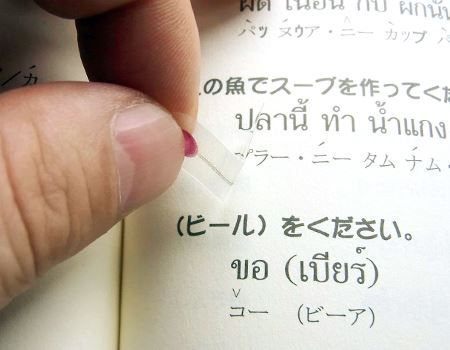 ผัด เนื้อน กับ ผักนั้น
パッ ヌウア・ニー カップ パ
の魚でスープを作ってくだ
ปลานี้ ทำ น้ำแกง
プラー・ニー タム ナム・
(ビール) をください。
ขอ (เบียร์)
コー (ビーア)
カ